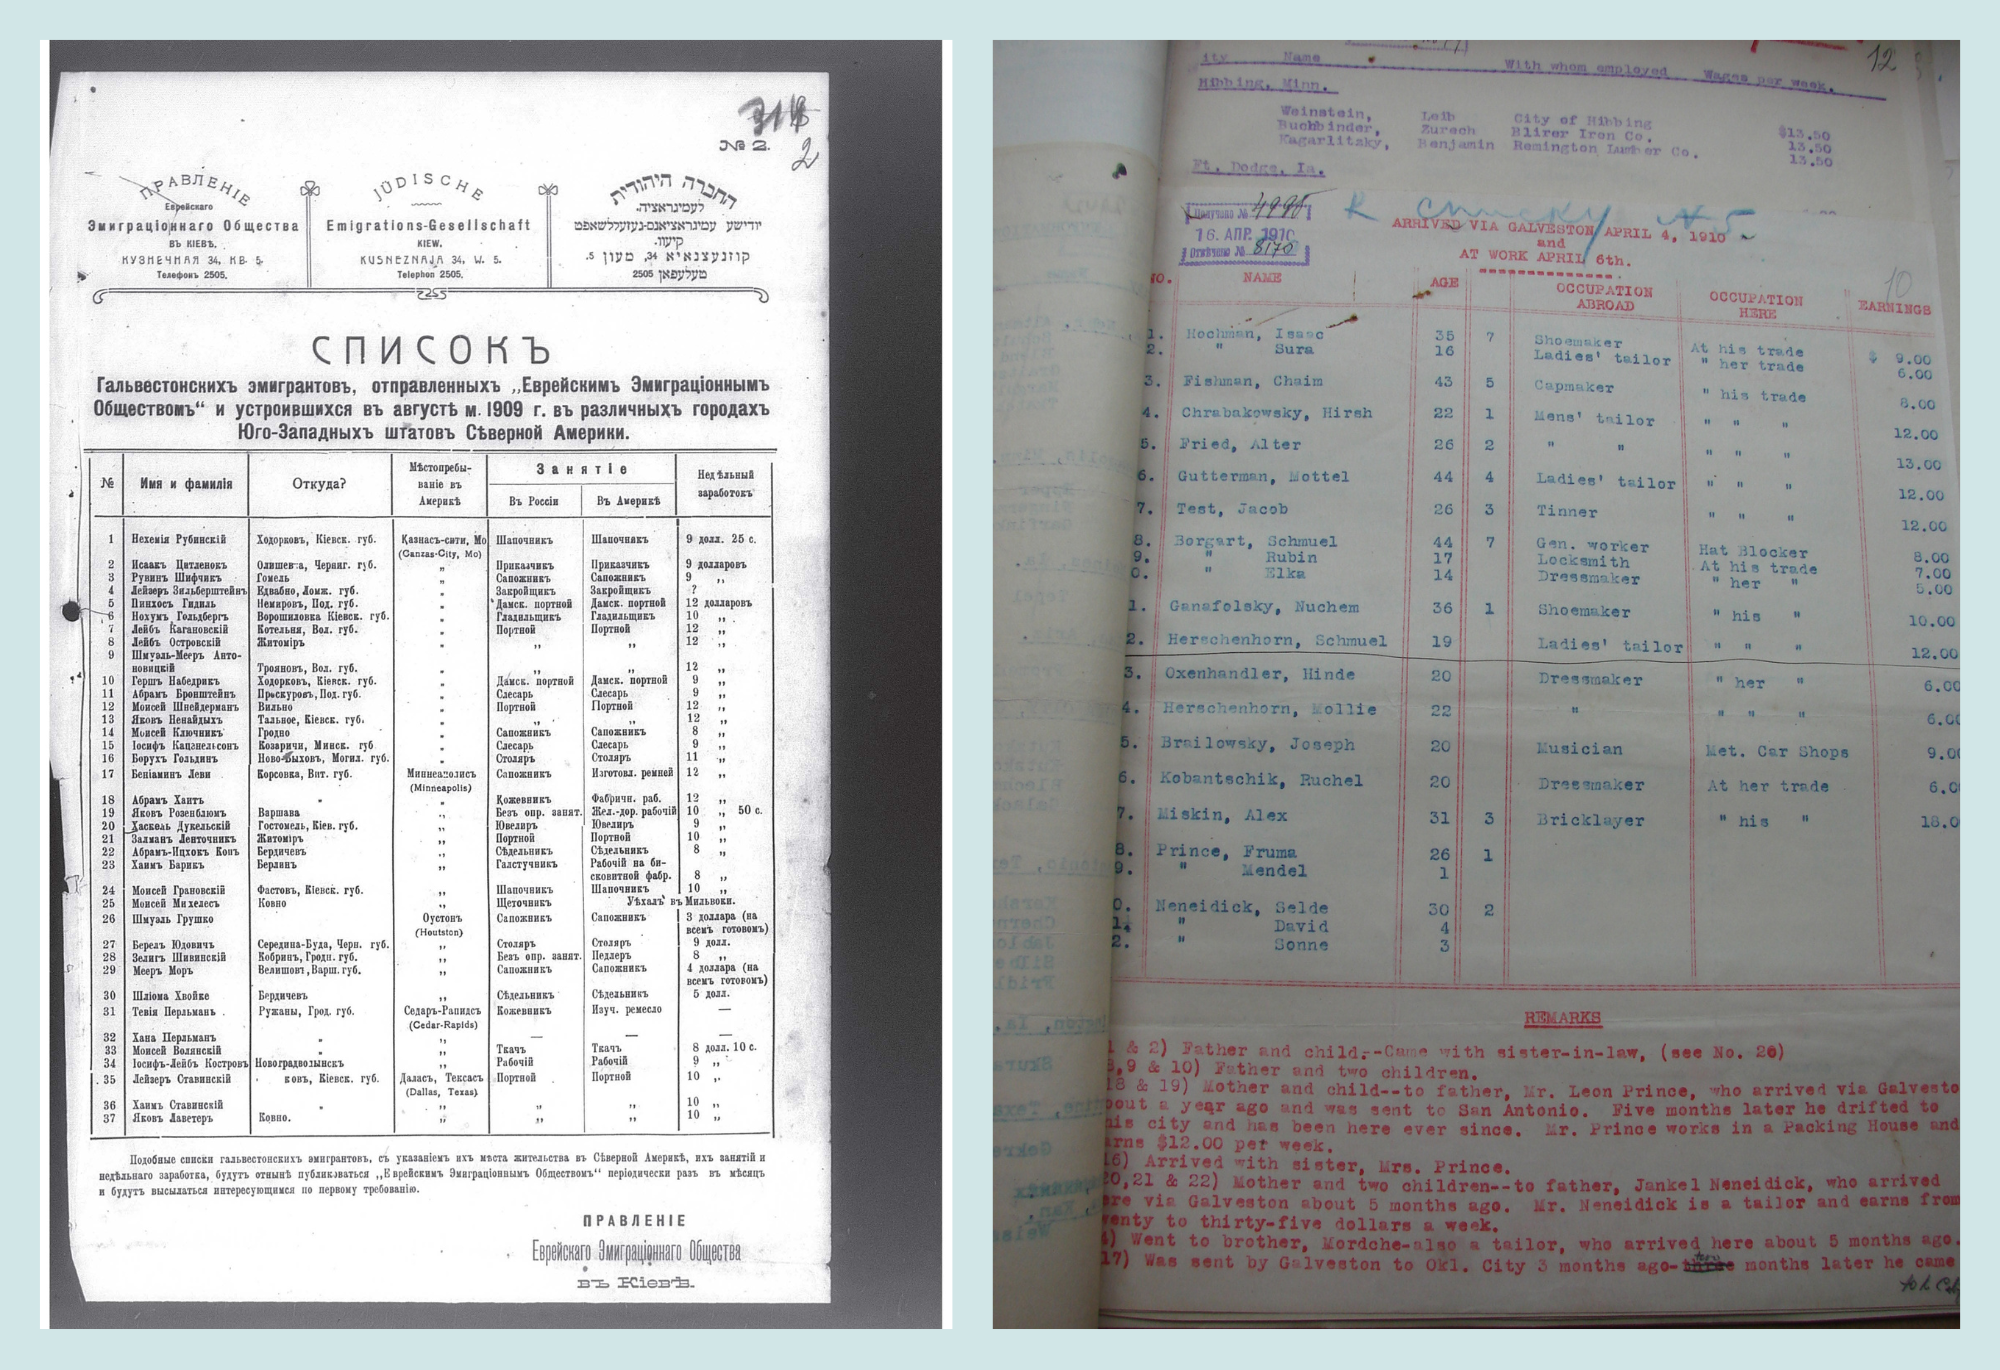 314
2
№ 2.
ПРАВЛЕНІЕ
Еврейскаго
Эмиграціоннаго Общества
ВЪ КІЕВѢ.
КУЗНЕЧНАЯ 34, КВ. 5.
Телефонъ 2505.
JÜDISCHE
Emigrations-Gesellschaft
KIEW.
KUSNEZNAJA 34, W. 5.
Telephon 2505.
החברה היהודית
לעמיגראציה.
יודישע עמיגראציאנס-געזעללשאפט
קיעוו.
קוזנעצנאיא 34, מעון 5.
טעלעפאן 2505
СПИСОКЪ
Гальвестонскихъ эмигрантовъ, отправленныхъ „Еврейскимъ Эмиграціоннымъ
Обществомъ“ и устроившихся въ августѣ м. 1909 г. въ различныхъ городахъ
Юго-Западныхъ штатовъ Сѣверной Америки.
№ Имя и фамилія Откуда? Мѣстопребываніе въ Америкѣ Занятіе Въ Россіи Въ Америкѣ Недѣльный заработокъ
1 Нехемія Рубинскій Ходорковъ, Кіевск. губ. Казнасъ-сити, Мо Шапочникъ Шапочнякъ 9 долл. 25 с.
(Canzas-City, Mo)
2 Исаакъ Цитленокъ Олишевка, Черниг. губ. „ Приказчикъ Приказчикъ 9 долларовъ
3 Рувинъ Шифчикъ Гомель „ Сапожникъ Сапожникъ 9 „
4 Лейзеръ Зильберштейнъ Едвабно, Ломж. губ. „ Закройщикъ Закройщикъ ?
5 Пинхосъ Гидиль Немировъ, Под. губ. „ Дамск. портной Дамск. портной 12 долларовъ
6 Нохумъ Гольдбергъ Ворошиловка Кіевск. губ. „ Гладильщикъ Гладильщикъ 10 „
7 Лейбъ Кагановскій Котельня, Вол. губ. „ Портной Портной 12 „
8 Лейбъ Островскій Житоміръ „ „ „ 12 „
9 Шмуэль-Мееръ Анто-
новицкій Трояновъ, Вол. губ. „ „ „ 12 „
10 Гершъ Набедрикъ Ходорковъ, Кіевск. губ. „ Дамск. портной Дамск. портной 9 „
11 Абрамъ Бронштейнъ Проскуровъ, Под. губ. „ Слесарь Слесарь 9 „
12 Моисей Шнейдерманъ Вильно „ Портной Портной 12 „
13 Яковъ Ненайдыхъ Тальное, Кіевск. губ. „ „ „ 12 „
14 Моисей Ключникъ Гродно „ Сапожникъ Сапожникъ 8 „
15 Іосифъ Кацнельсонъ Козаричи, Минск. губ „ Слесарь Слесарь 9 „
16 Борухъ Гольдинъ Ново-Быховъ, Могил. губ. „ Столяръ Столяръ 11 „
17 Беніаминъ Леви Корсовка, Вит. губ. Миннеаполисъ Сапожникъ Изготовл. ремней 12 „
(Minneapolis)
18 Абрамъ Хаитъ „ „ Кожевникъ Фабричн. раб. 12 „
19 Яковъ Розенблюмъ Варшава „ Безъ опр. занят. Жел.-дор. рабочій 10 „ 50 с.
20 Хаскель Дукельскій Гостомель, Кіев. губ. „ Ювелиръ Ювелиръ 9 „
21 Залманъ Ленточникъ Житоміръ „ Портной Портной 10 „
22 Абрамъ-Ицхокъ Конъ Бердичевъ „ Сѣдельникъ Сѣдельникъ 8 „
23 Хаимъ Барикъ Берлинъ „ Галстучникъ Рабочій на би-
сковитной фабр. 8 „
24 Моисей Грановскій Фастовъ, Кіевск. губ. „ Шапочникъ Шапочникъ 10 „
25 Моисей Михелесъ Ковно „ Щеточникъ Уѣхалъ въ Мильвоки.
26 Шмуэль Грушко Оустонъ Сапожникъ Сапожникъ 3 доллара (на
(Houtston) всемъ готовомъ)
27 Берелъ Юдовичъ Середина-Буда, Черн. губ. „ Столяръ Столяръ 9 долл.
28 Зелигъ Шивинскій Кобринъ, Гродн. губ. „ Безъ опр. занят. Педлеръ 8 „
29 Мееръ Моръ Велишовъ, Варш. губ. „ Сапожникъ Сапожникъ 4 доллара (на
всемъ готовомъ)
30 Шліома Хвойке Бердичевъ „ Сѣдельникъ Сѣдельникъ 5 долл.
31 Тевія Перльманъ Ружаны, Грод. губ. Седаръ-Рапидсъ Кожевникъ Изуч. ремесло —
(Cedar-Rapids)
32 Хана Перльманъ „ „ — — —
33 Моисей Волянскій „ „ Ткачъ Ткачъ 8 долл. 10 с.
34 Іосифъ-Лейбъ Костровъ Новоградволынскъ „ Рабочій Рабочій 9 „
35 Лейзеръ Ставинскій ковъ, Кіевск. губ. Даласъ, Тексасъ Портной Портной 10 „
(Dallas, Texas)
36 Хаимъ Ставинскій „ „ „ „ 10 „
37 Яковъ Лаветеръ Ковно. „ „ „ 10 „
Подобные списки гальвестонскихъ эмигрантовъ, съ указаніемъ ихъ мѣста жительства въ Сѣверной Америкѣ, ихъ занятій и
недѣльнаго заработка, будутъ отнынѣ публиковаться „Еврейскимъ Эмиграціоннымъ Обществомъ“ періодически разъ въ мѣсяцъ
и будутъ высылаться интересующимся по первому требованію.
ПРАВЛЕНІЕ
Еврейскаго Эмиграціоннаго Общества
въ Кіевѣ.
12
ity Name With whom employed Wages per week.
Hibbing, Minn.
Weinstein, Leib City of Hibbing $13.50
Buchbinder, Zurech Blirer Iron Co. 13.50
Kagarlitzky, Benjamin Remington Lumber Co. 13.50
Ft. Dodge, Ia.
Получено № 4995
16. АПР. 1910
Отвѣчено № 8170
К списку № 5.
ARRIVED VIA GALVESTON APRIL 4, 1910
and
AT WORK APRIL 6th.
10
NO. NAME AGE OCCUPATION ABROAD OCCUPATION HERE EARNINGS
1. Hochman, Isaac 35 7 Shoemaker At his trade $ 9.00
2. " Sura 16 Ladies' tailor " her trade 6.00
3. Fishman, Chaim 43 5 Capmaker " his trade 8.00
4. Chrabakowsky, Hirsh 22 1 Mens' tailor " " " 12.00
5. Fried, Alter 26 2 " " " " " 13.00
6. Gutterman, Mottel 44 4 Ladies' tailor " " " 12.00
7. Test, Jacob 26 3 Tinner " " " 12.00
8. Borgart, Schmuel 44 7 Gen. worker Hat Blocker 8.00
9. " Rubin 17 Locksmith At his trade 7.00
0. " Elka 14 Dressmaker " her " 5.00
1. Ganafolsky, Nuchem 36 1 Shoemaker " his " 10.00
2. Herschenhorn, Schmuel 19 Ladies' tailor " " " 12.00
3. Oxenhandler, Hinde 20 Dressmaker " her " 6.00
4. Herschenhorn, Mollie 22 " " " " 6.00
5. Brailowsky, Joseph 20 Musician Met. Car Shops 9.00
6. Kobantschik, Ruchel 20 Dressmaker At her trade 6.00
7. Miskin, Alex 31 3 Bricklayer " his " 18.0
8. Prince, Fruma 26 1
9. " Mendel 1
0. Neneidick, Selde 30 2
1. " David 4
2. " Sonne 3
REMARKS
1 & 2) Father and child.--Came with sister-in-law, (see No. 20)
8,9 & 10) Father and two children.
18 & 19) Mother and child--to father, Mr. Leon Prince, who arrived via Galvesto
bout a year ago and was sent to San Antonio. Five months later he drifted to
his city and has been here ever since. Mr. Prince works in a Packing House and
arns $12.00 per week.
16) Arrived with sister, Mrs. Prince.
20,21 & 22) Mother and two children--to father, Jankel Neneidick, who arrived
ere via Galveston about 5 months ago. Mr. Neneidick is a tailor and earns from
wenty to thirty-five dollars a week.
4) Went to brother, Mordche-also a tailor, who arrived here about 5 months ago.
17) Was sent by Galveston to Okl. City 3 months ago- two months later he came
to K. C.